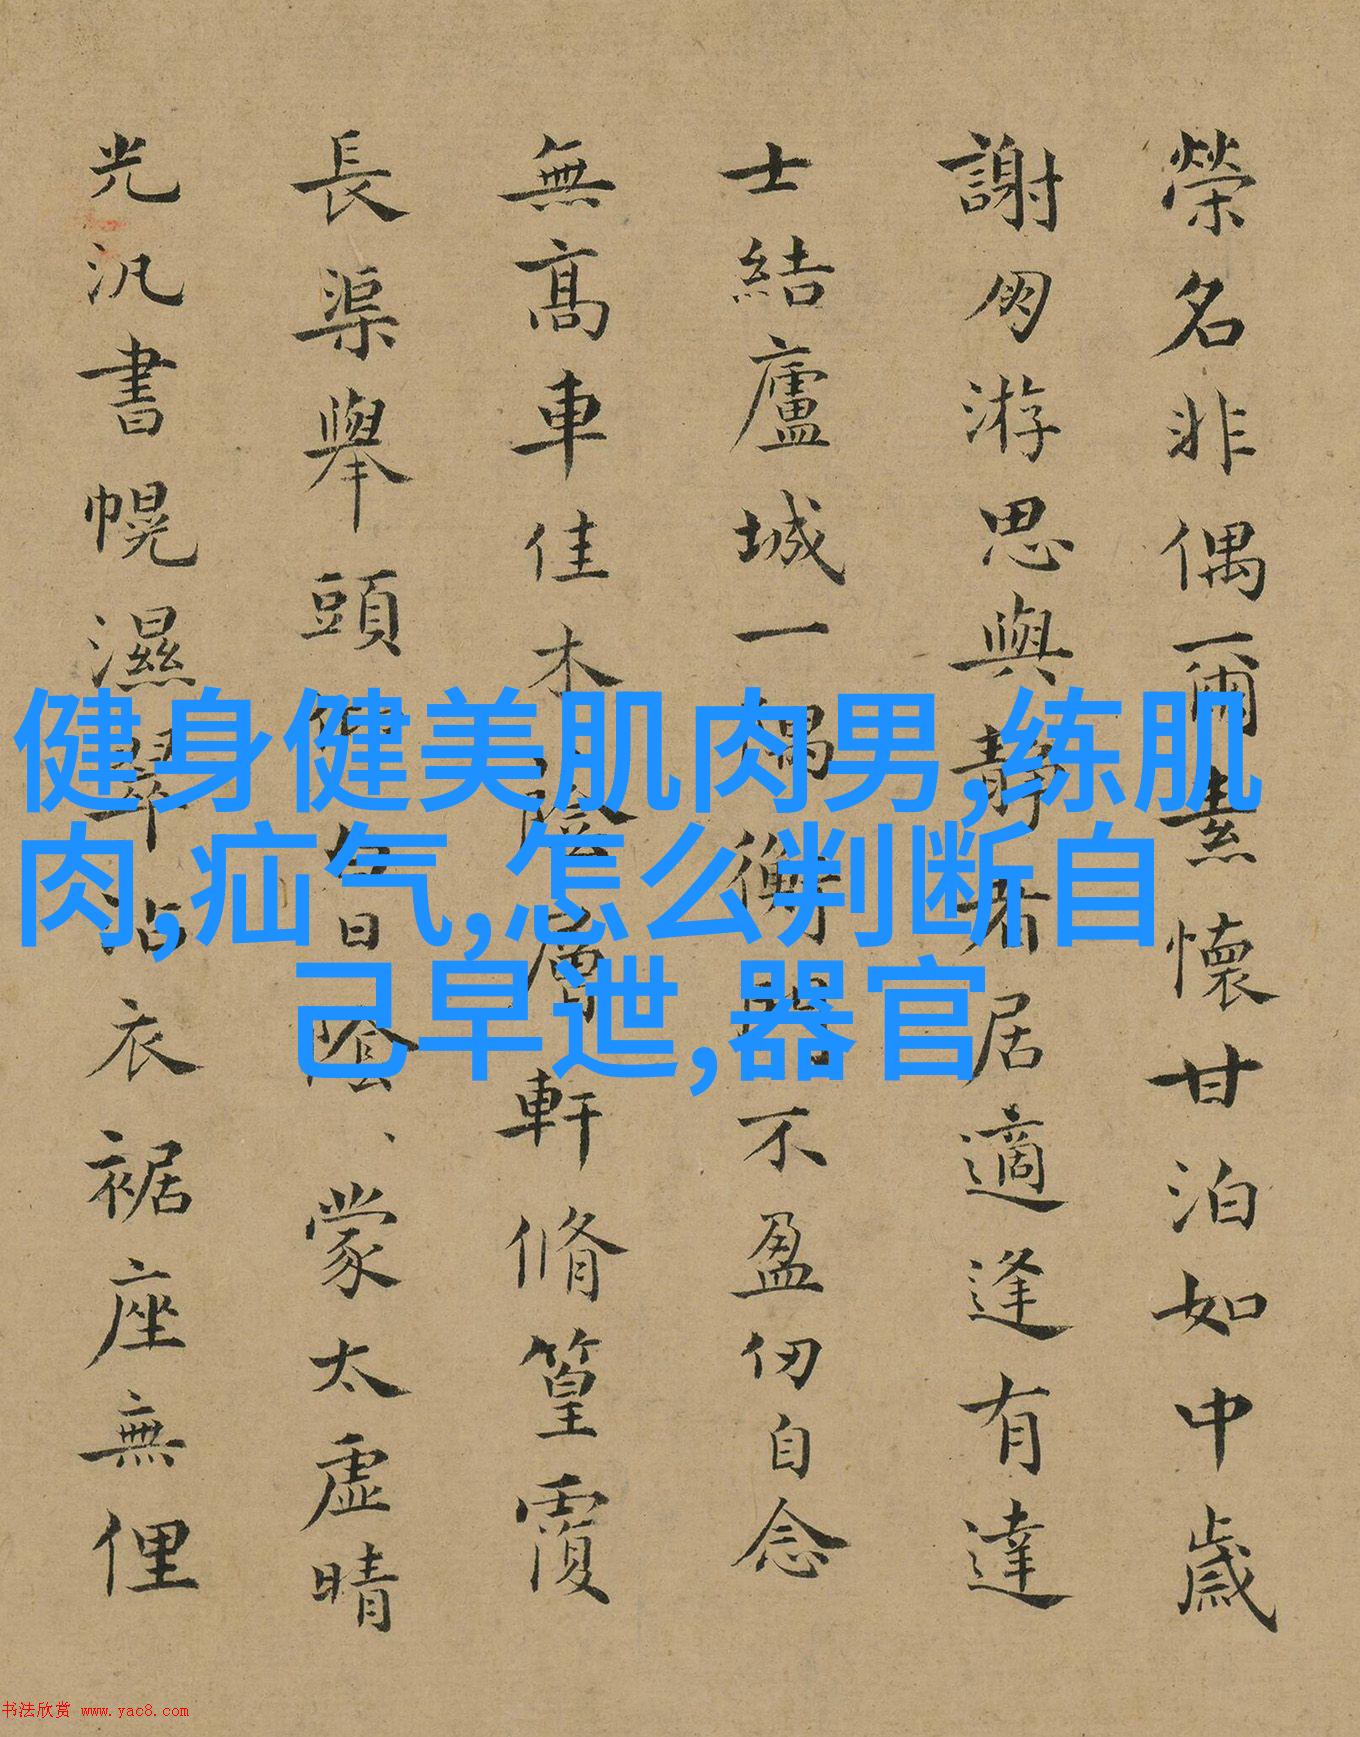 榮名非偶爾素懷甘泊如中歲
謝朋游思與靜者居適逢有達
士結廬城一隅衡門不盈仞自念
無高車佳木陰層軒脩篁覆
長渠舉頭白日陰蒙太虛晴
光汎書幌濕翠沾衣裾座無俚
健身健美肌肉男,练肌
肉,疝气,怎么判断自
己早泄,器官
书法欣赏 www.yac8.com